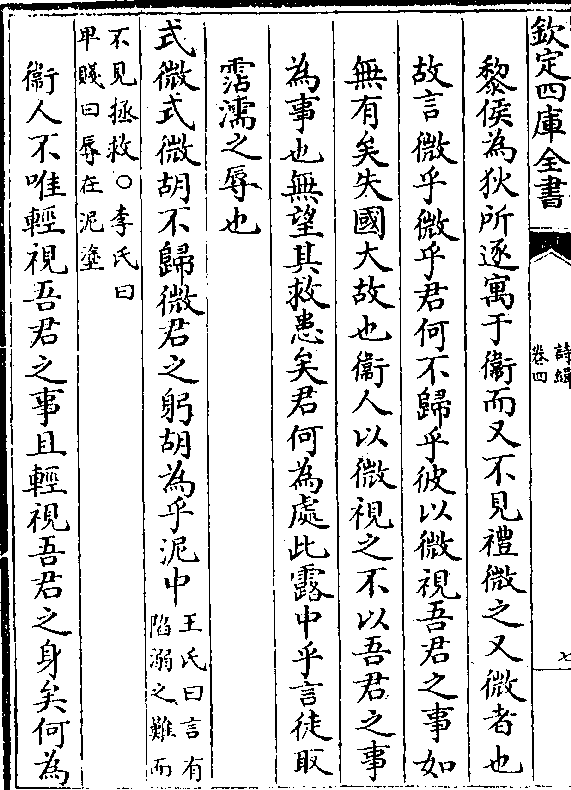 欽定四庫全書
詩緝
卷四
七
黎侯為狄所逐寓于衞而又不見禮微之又微者也
故言微乎微乎君何不歸乎彼以微視吾君之事如
無有矣失國大故也衞人以微視之不以吾君之事
為事也無望其救患矣君何為處此露中乎言徒取
霑濡之辱也
式微式微胡不歸微君之躬胡為乎泥中
王氏曰言有
陷溺之難而
不見拯救○李氏曰
甲賤曰辱在泥塗
衞人不唯輕視吾君之事且輕視吾君之身矣何為